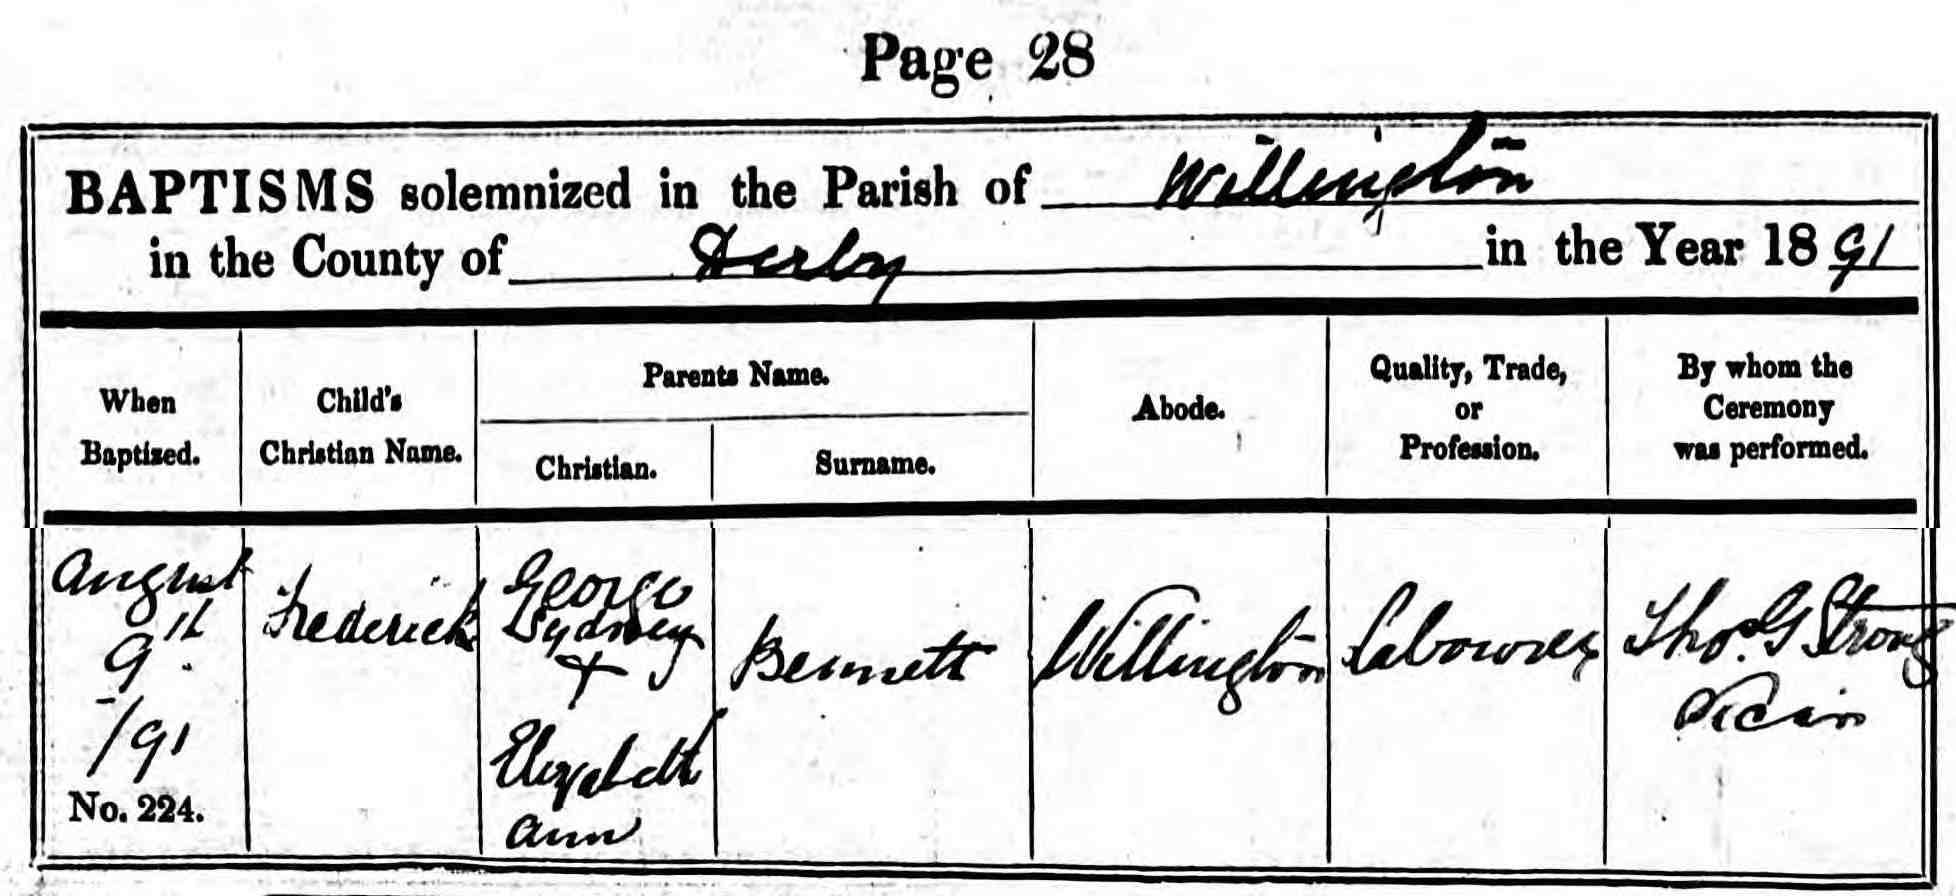 Page 28
BAPTISMS solemnized in the Parish of Willington
in the County of Derby in the Year 1891
When Baptized.
Child's Christian Name.
Parents Name.
Christian.
Surname.
Abode.
Quality, Trade, or Profession.
By whom the Ceremony was performed.
August
9th
/91
No. 224.
Frederick
George
Sydney
+
Elizabeth
Ann
Bennett
Willington
Labourer
Thos. G Strong
Vicar